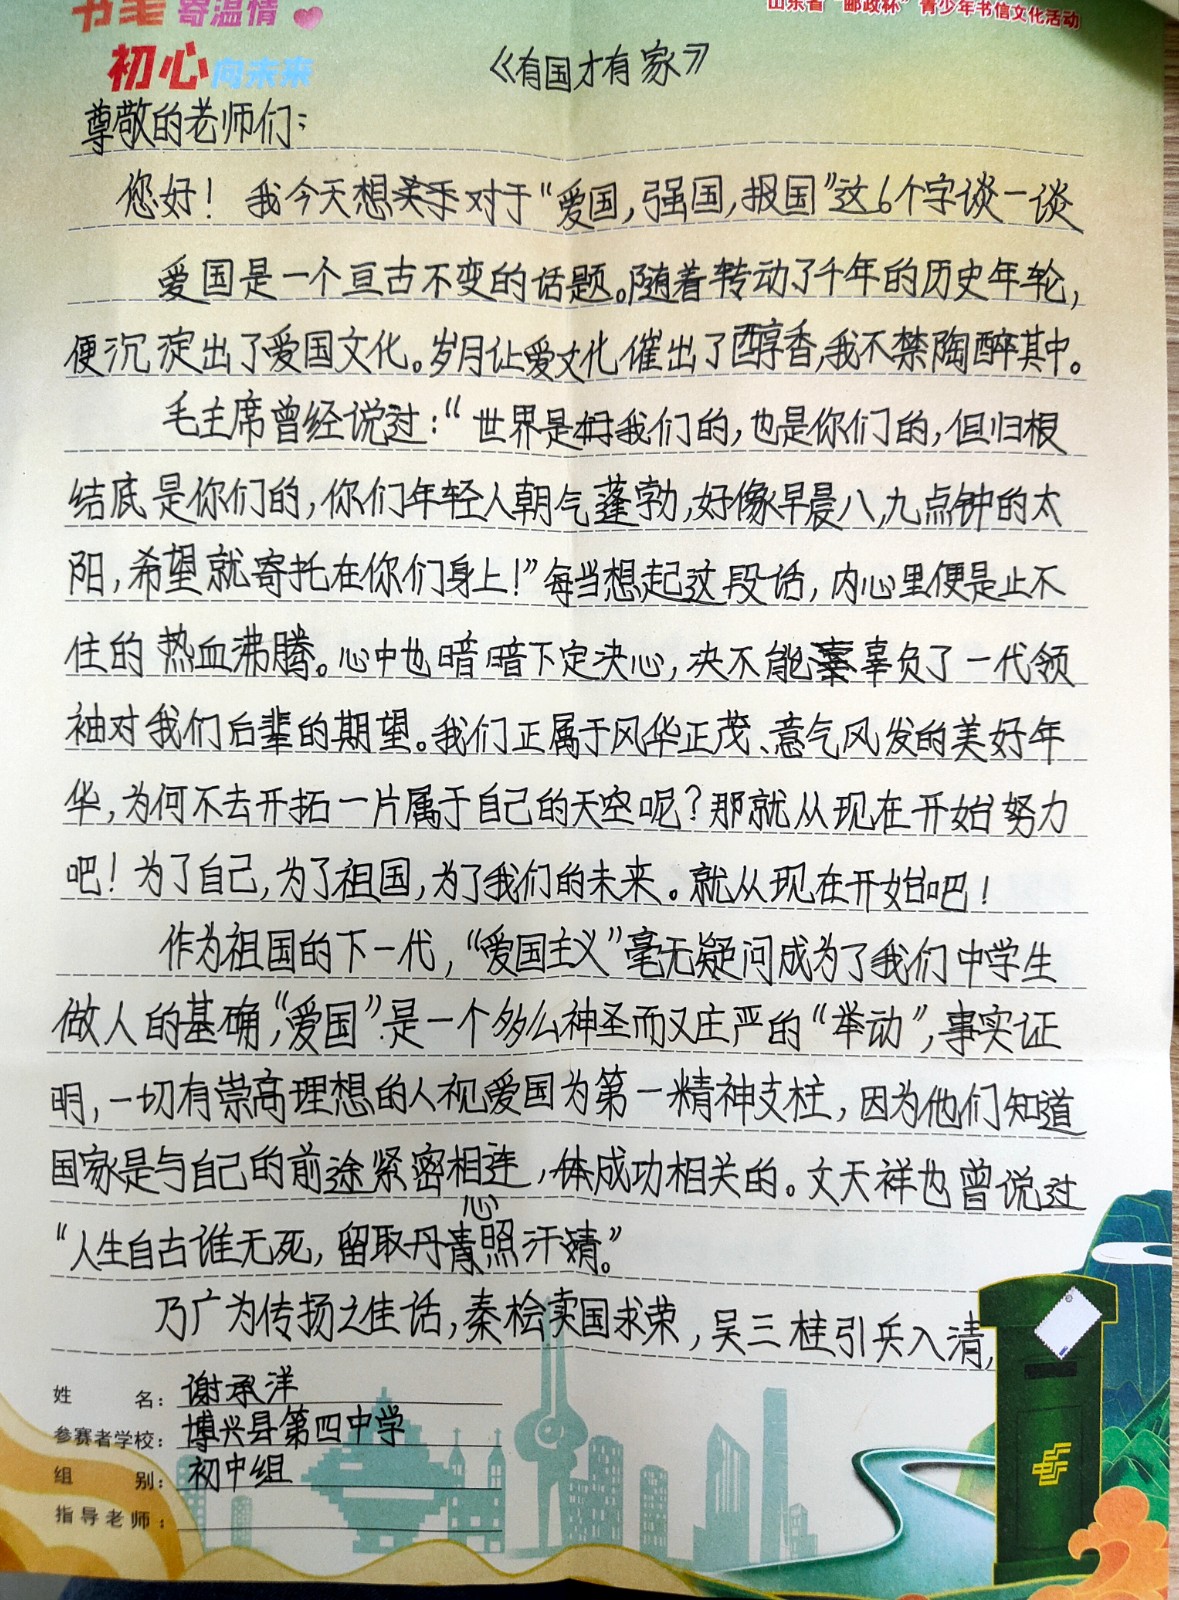 书笔寄温情
初心向未来
山东省“邮政杯”青少年书信文化活动
《有国才有家》
尊敬的老师们：
您好！我今天想对于“爱国，强国，报国”这6个字谈一谈
爱国是一个亘古不变的话题。随着转动了千年的历史年轮，
便沉淀出了爱国文化。岁月让爱文化催出了醇香，我不禁陶醉其中。
毛主席曾经说过：“世界是我们的，也是你们的，但归根
结底是你们的，你们年轻人朝气蓬勃，好像早晨八，九点钟的太
阳，希望就寄托在你们身上！”每当想起这段话，内心里便是止不
住的热血沸腾。心中也暗暗下定决心，决不能辜负了一代领
袖对我们后辈的期望。我们正属于风华正茂、意气风发的美好年
华，为何不去开拓一片属于自己的天空呢？那就从现在开始努力
吧！为了自己，为了祖国，为了我们的未来。就从现在开始吧！
作为祖国的下一代，“爱国主义”毫无疑问成为了我们中学生
做人的基确，“爱国”是一个多么神圣而又庄严的“举动”，事实证
明，一切有崇高理想的人视爱国为第一精神支柱，因为他们知道
国家是与自己的前途紧密相连，体成功相关的。文天祥也曾说过
“人生自古谁无死，留取丹心照汗青。”
乃广为传扬之佳话，秦桧卖国求荣，吴三桂引兵入清，
姓名：谢承洋
参赛者学校：博兴县第四中学
组别：初中组
指导老师：